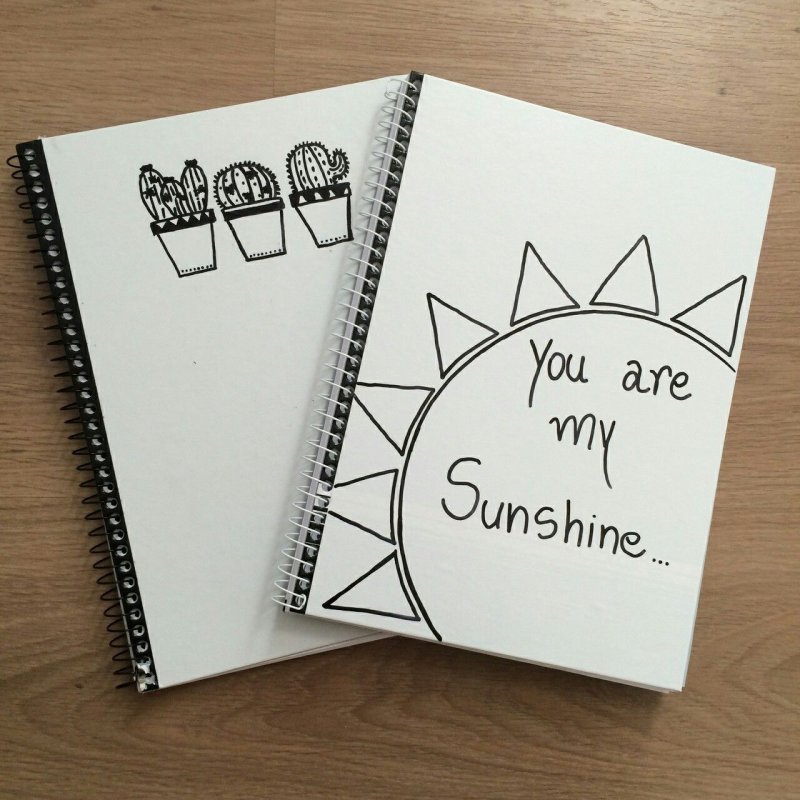 You are
my
Sunshine...